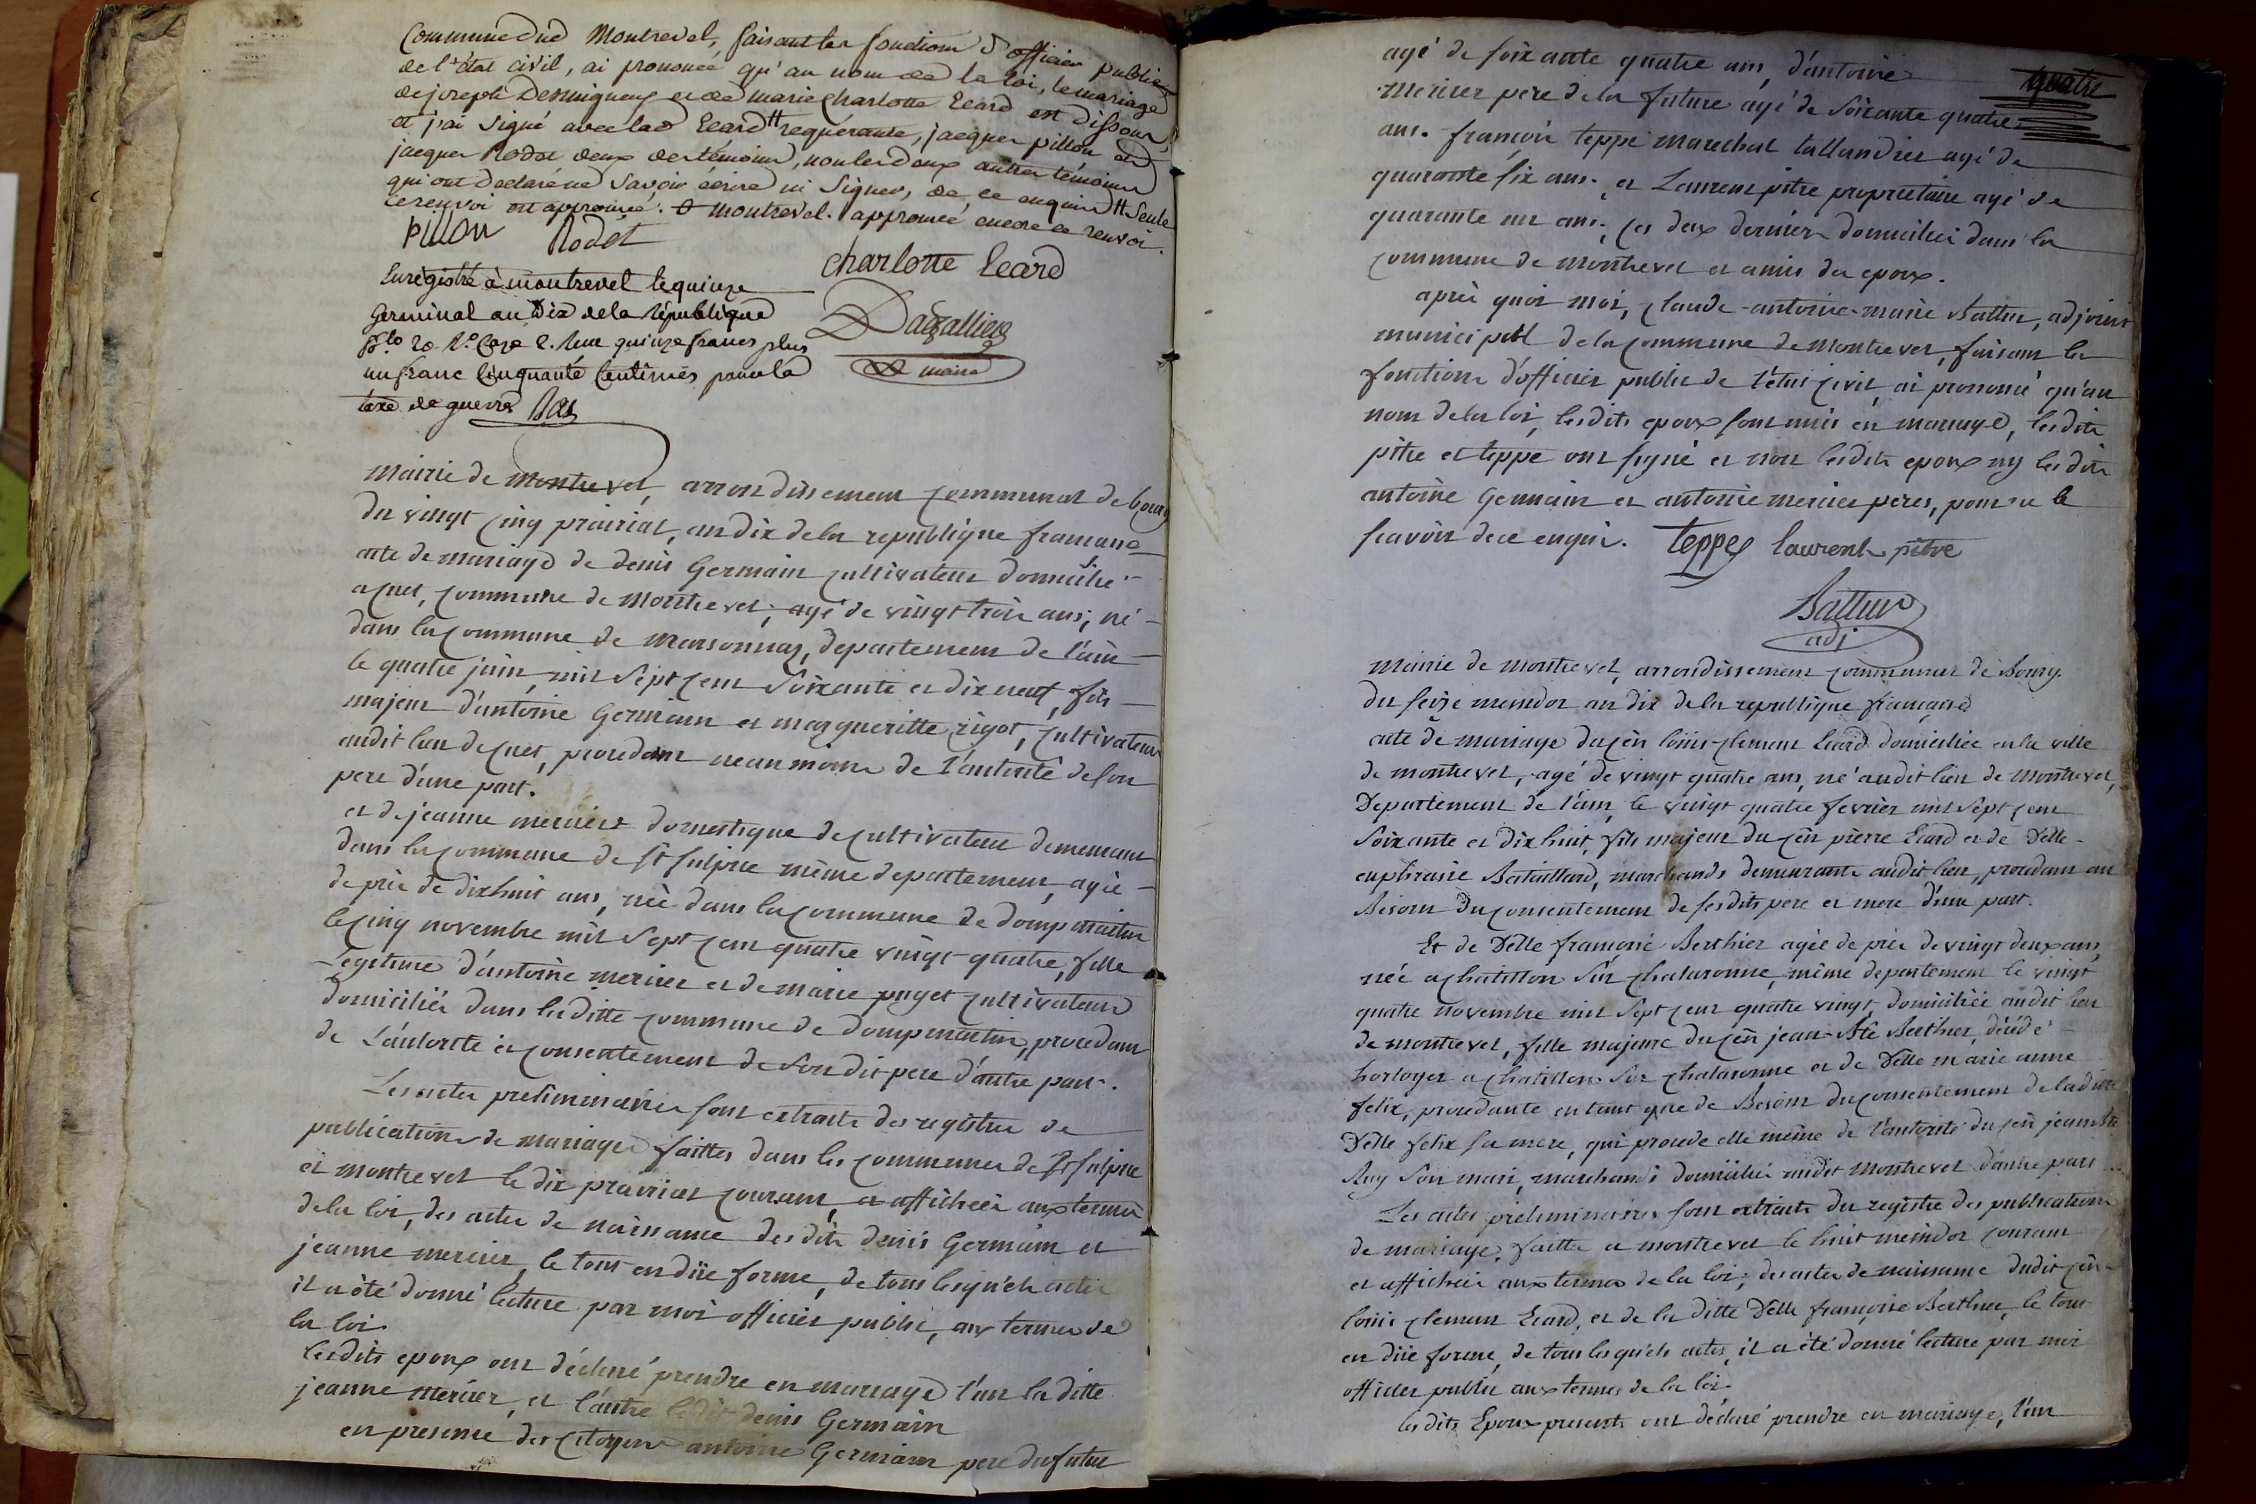 Commune de Montrevel, faisant les fonctions d'officier public
de l'état civil, ai prononcé qu'au nom de la loi, le mariage
de joseph Desmignaux et de marie charlotte Ecard est dissous,
et j'ai signé avec lad Ecard # requérante, jacques pillon et
jacques Rodet deux des témoins, non les deux autres témoins
qui ont declaré ne savoir écrire ni signer, de ce enquis # Seule
ce renvoi est approuvé. à montrevel. approuvé encore ce renvoi.
pillon Rodet
charlotte Ecard
Enregistré à montrevel le quinze
Germinal an Dix de la République
f° 20 R° Case 2. Reçu quinze francs plus
un franc Cinquante Centimes pour la
taxe de guerre
Dagallier
maire
Mairie de montrevel, arrondissement communal de bourg
du vingt cinq prairial, an dix de la republique francaise
acte de mariage de denis Germain cultivateur domicilié
a cuet, commune de Montrevel, agé de vingt trois ans, né
dans la commune de marsonnas, departement de l'ain
le quatre juin, mil sept cent soixante et dix neuf, fils
majeur d'antoine Germain et margueritte rigot, cultivateurs
audit lieu de cuet, procedant neanmoins de l'autorité de son
pere d'une part.
et de jeanne mercier domestique de cultivateur demeurant
dans la commune de st sulpice même departement, agée
de près de dixhuit ans, née dans la commune de dompmartin
le cinq novembre mil sept cent quatre vingt quatre, fille
Legitime d'antoine mercier et de marie puget cultivateurs
domiciliés dans laditte commune de dompmartin, procedant
de L'autorité et consentement de son dit pere d'autre part.
Les actes preliminaires sont extraits des registres de
publications de mariage faittes dans les communes de St sulpice
et montrevel le dix prairial courant, et affichées aux termes
de la loi, des actes de naissance desdits denis Germain et
jeanne mercier, le tout en düe forme, de tous lesquels actes
il a été donné lecture par moi officier public, aux termes de
la loi.
lesdits epoux ont déclaré prendre en mariage l'un la ditte
jeanne mercier, et l'autre ledit denis Germain
en presence des citoyens antoine Germain pere du futur
quatre
agé de soixante quatre ans, d'antoine
mercier pere de la future agé de soixante quatre
ans. françois teppe marechal tallandier agé de
quarante six ans. et Laurent pitre proprietaire agé de
quarante un ans. ces deux derniers domiciliés dans la
commune de montrevel et amis des epoux.
après quoi moi, claude-antoine-marie Battur, adjoint
municipal de la commune de montrevel, faisant les
fonctions d'officier public de l'état civil, ai prononcé qu'au
nom de la loi, lesdits epoux sont unis en mariage, lesdits
pitre et teppe ont signé et non lesdits epoux ny lesdits
antoine Germain et antoine mercier peres, pour ne le
scavoir de ce enquis. teppe laurent pitre
Battur
adj
Mairie de montrevel, arrondissement communal de Bourg.
du seize messidor an dix de la republique française
acte de mariage du cen loüis clement Ecard domiciliée en la ville
de montrevel, agé de vingt quatre ans, né audit lieu de montrevel,
Departement de l'ain, le vingt quatre fevrier mil sept cent
soixante et dixhuit, fils majeur du cen pierre Ecard et de Delle
euphrasie Bataillard, marchands demeurants audit lieu, procedant au
Besoin du consentement de ses dits pere et mere d'une part.
Et de Delle françoise Berthier agée de près de vingt deux ans,
née a chatillon sur chalaronne, même departement le vingt
quatre novembre mil sept cent quatre vingt, domiciliée audit lieu
de montrevel, fille majeure du cen jean-Bte Berthier, décédé
horloger a chatillon sur chalaronne et de Delle marie anne
felix, procedante en tant que de Besoin du consentement de laditte
Delle felix sa mere, qui procede elle même de l'autorité du cen jean Bte
Ruy son mari, marchand domicilié audit Montrevel d'autre part
Les actes preliminaires sont extraits du registre des publications
de mariage, faitte a montrevel le huit messidor courant
et affichée aux termes de la loi; des actes de naissance dudit cen
loüis clement Ecard, et de la ditte Delle françoise Berthier, le tout
en düe forme, de tous lesquels actes, il a été donné lecture par moi
officier public aux termes de la loi.
les dits Epoux presents ont déclaré prendre en mariage, l'un